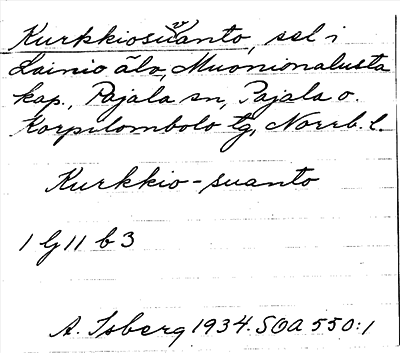 Kurkkiosuanto, sel i
Lainio älv, Muonionalusta
kap., Pajala sn, Pajala o.
Korpilombolo tg, Norrb. l.
Kurkkio-suanto
1 G 11 b 3
A. Isberg 1934. SOA 550:1